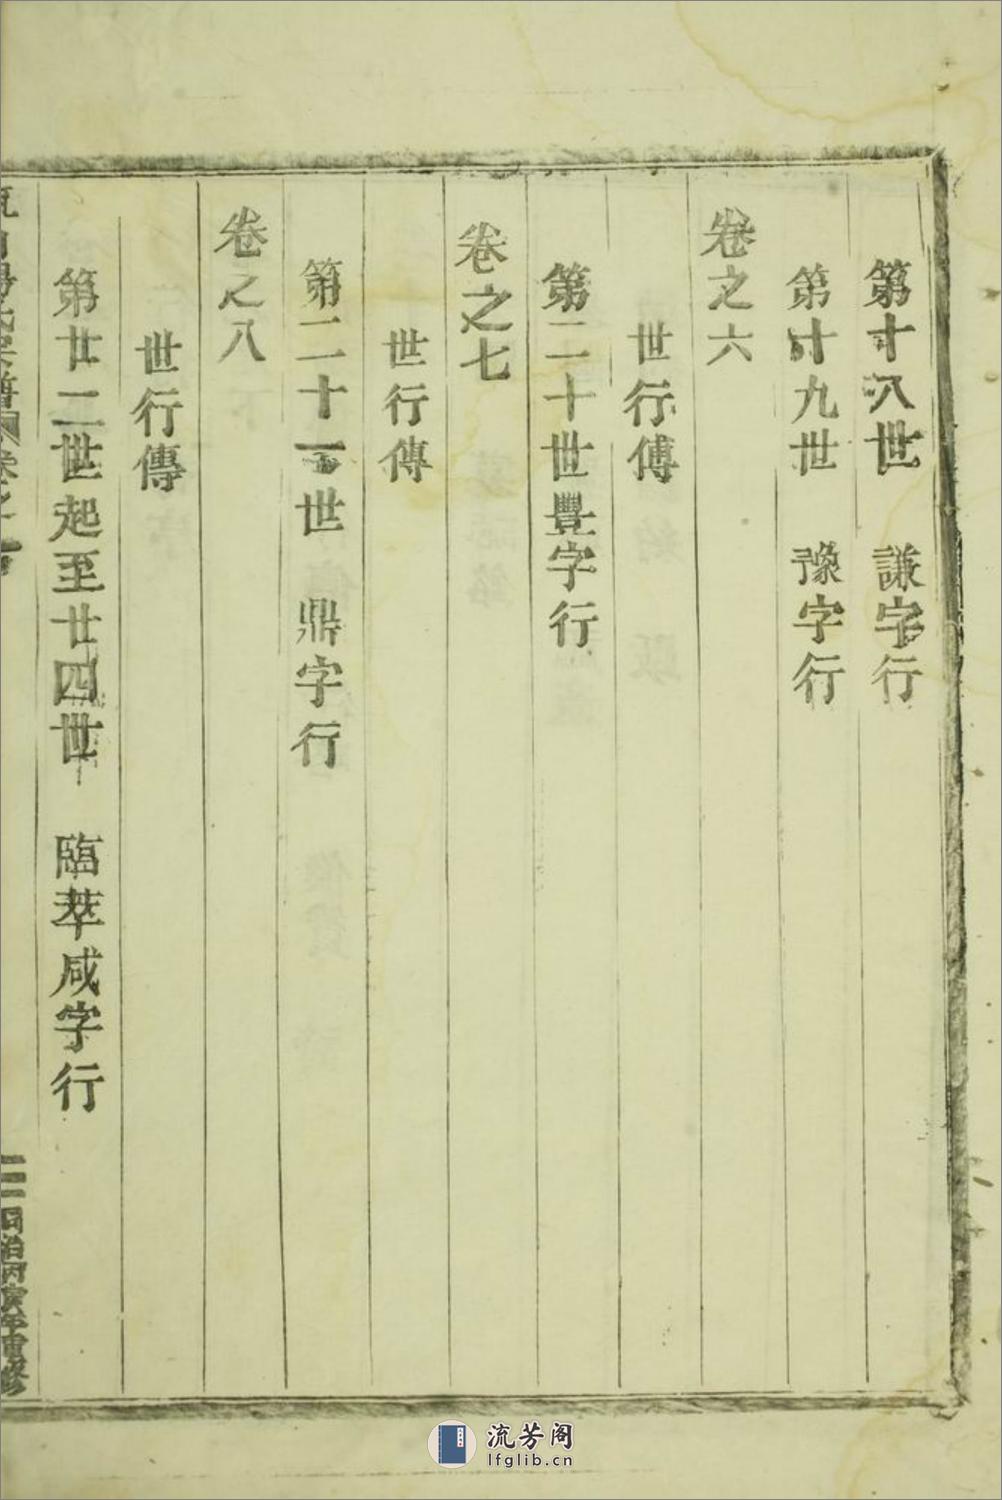 第十八世　謙字行
第十九世　豫字行
卷之六
世行傳
第二十世豐字行
卷之七
世行傳
第二十一世　鼎字行
卷之八
世行傳
第廿二世起至廿四世　臨萃咸字行
同治丙寅年重修
流芳阁
lfglib.cn